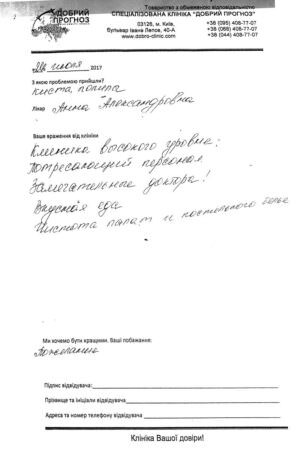 Товариство з обмеженою відповідальністю
ДОБРИЙ ПРОГНОЗ
СПЕЦІАЛІЗОВАНА КЛІНІКА "ДОБРИЙ ПРОГНОЗ"
03126, м. Київ,
бульвар Івана Лепсе, 40-А
www.dobro-clinic.com
+38 (095) 408-77-07
+38 (068) 408-77-07
+38 (044) 408-77-07
июля 2017
З якою проблемою прийшли?
киста, полипа
Лікар Анна Александровна
Ваше враження від клініки
Клиника высокого уровня:
Потрясающий персонал
Замечательные доктора!
Вкусная еда
Чистота палат и постельного белья
Ми хочемо бути кращими. Ваші побажання:
Підпис відвідувача:
Прізвище та ініціали відвідувача
Адреса та номер телефону відвідувача
Клініка Вашої довіри!